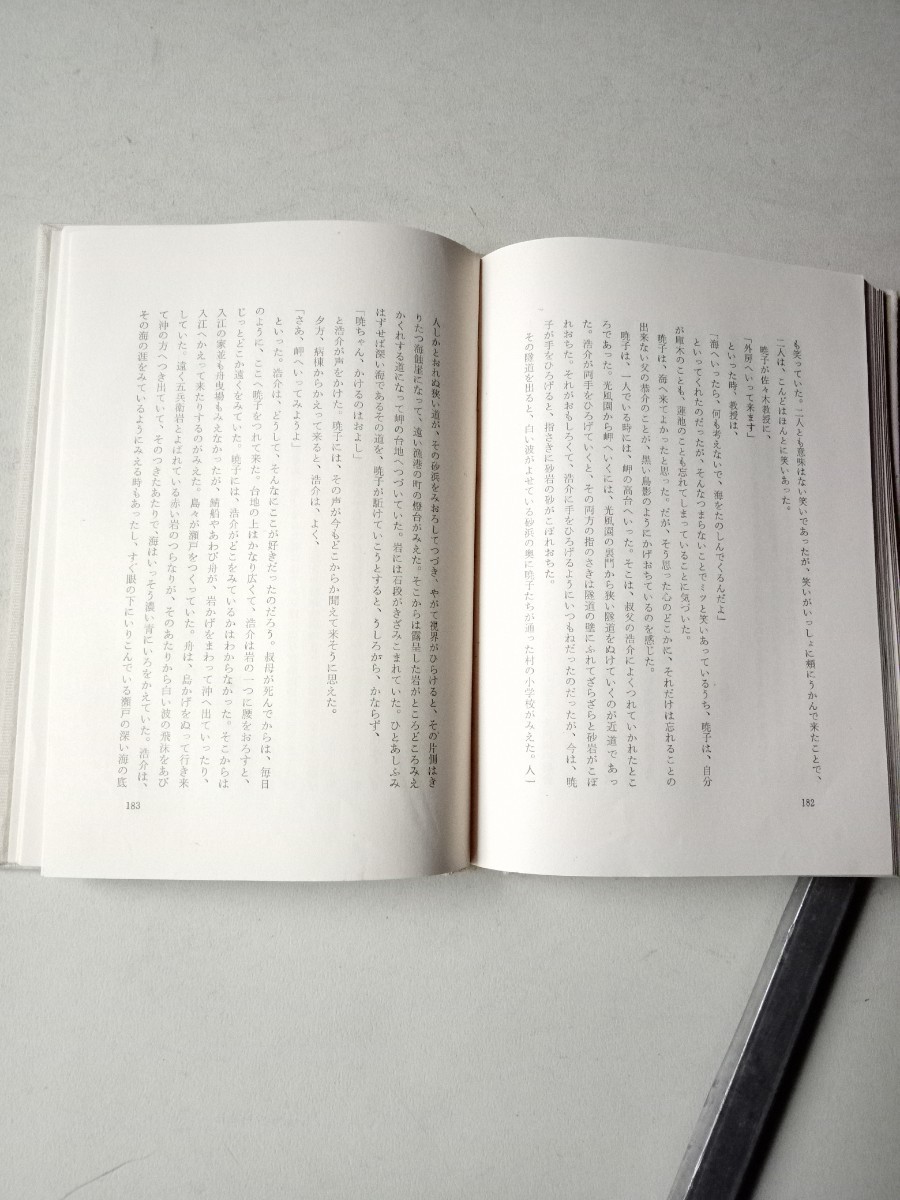 も笑っていた。二人とも意味はない笑いであったが、笑いがいっしょに頬にうかんで来たことで、
二人は、こんどはほんとに笑いあった。
暁子が佐々木教授に、
「外房へいって来ます」
といった時、教授は、
「海へいったら、何も考えないで、海をたのしんでくるんだよ」
といってくれたのだったが、そんなつまらないことでミツと笑いあっているうち、暁子は、自分
が唯木のことも、蓮池のことも忘れてしまっていることに気づいた。
暁子は、海へ来てよかったと思った。だが、そう思った心のどこかに、それだけは忘れることの
出来ない父の恭介のことが、黒い島影のようにかげおちているのを感じた。
暁子は、一人でいる時には、岬の高台へいった。そこは、叔父の浩介によくつれていかれたとこ
ろであった。光風園から岬へいくには、光風園の裏門から狭い隧道をぬけていくのが近道であっ
た。浩介が両手をひろげていくと、その両方の指のさきは隧道の壁にふれてざらざらと砂岩がこぼ
れおちた。それがおもしろくて、浩介に手をひろげるようにいつもねだったのだったが、今は、暁
子が手をひろげると、指さきに砂岩の砂がこぼれおちた。
その隧道を出ると、白い波がよせている砂浜の奥に暁子たちが通った村の小学校がみえた。人一
182
人しかとおれぬ狭い道が、その砂浜をみおろしてつづき、やがて視界がひらけると、その片側はき
りたつ海蝕崖になって、遠い漁港の町の燈台がみえた。そこからは露呈した岩がところどころみえ
かくれする道になって岬の台地へつづいていた。岩には石段がきざみこまれていた。ひとあしふみ
はずせば深い海であるその道を、暁子が駈けていこうとすると、うしろから、かならず、
「暁ちゃん、かけるのはおよし」
と浩介が声をかけた。暁子には、その声が今もどこからか聞えて来そうに思えた。
夕方、病棟からかえって来ると、浩介は、よく、
「さあ、岬へいってみようよ」
といった。浩介は、どうして、そんなにここが好きだったのだろう。叔母が死んでからは、毎日
のように、ここへ暁子をつれて来た。台地の上はかなり広くて、浩介は岩の一つに腰をおろすと、
じっとどこか遠くをみていた。暁子には、浩介がどこをみているかはわからなかった。そこからは
入江の家並も舟曳場もみえなかったが、鯖船やあわび舟が、岩かげをまわって沖へ出ていったり、
入江へかえって来たりするのがみえた。島々が瀬戸をつくっていた。舟は、島かげをぬって行き来
していた。遠く五兵衛岩とよばれている赤い岩のつらなりが、そのあたりから白い波の飛沫をあび
て沖の方へつき出ていて、そのつきたあたりで海はいっそう濃い青にいろをかえていた。浩介は、
その海の涯をみているようにみえる時もあったし、すぐ眼の下にいりこんでいる瀬戸の深い海の底
183